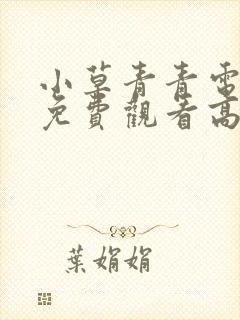 小草青青電
免費觀看高
葉娟娟